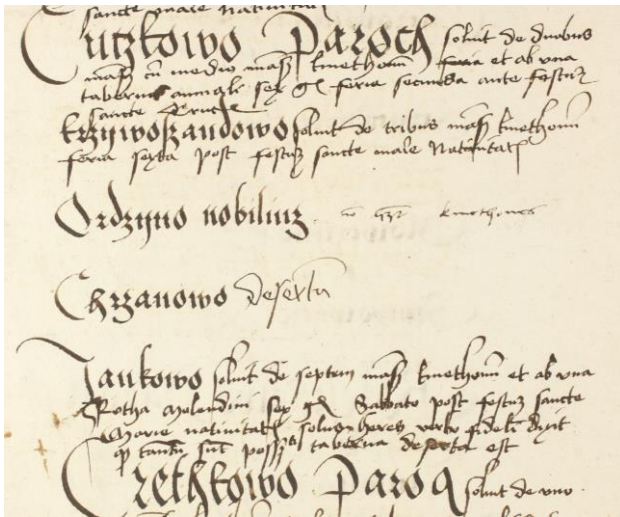 sancte marie nativitat
Cutzkowo Paroch solvit de duobus
mass cu medio mass kmethom feria et ab una
taberna annuali sex gr feria secunda ante festum
sancte Crucis
krzywoszandowo solvit de tribus mass kmethom
feria sexta post festum sancte marie Nativitat
Ordzyno nobilium kmethones
Chrzanowo deserta
Jankowo solvit de septem mass kmethom et ab una
Rotha molendini sex gr Sabbato post festum sancte
Marie nativitat heres verbo fideli dixit
q tantu sunt taberna deserta est
Crethkowo Paroch solvit de uno